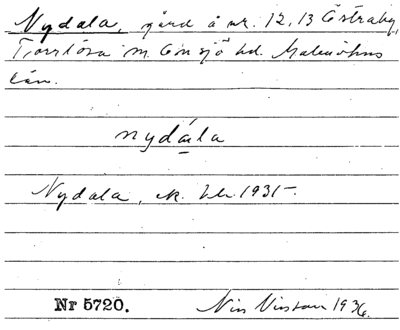 Nydala, gård å nr. 12, 13 Östraby,
Torrlösa sn. Onsjö hd. Malmöhus
län.
nydála
Nydala, ek. bl. 1935.
Nr 5720. 1936.